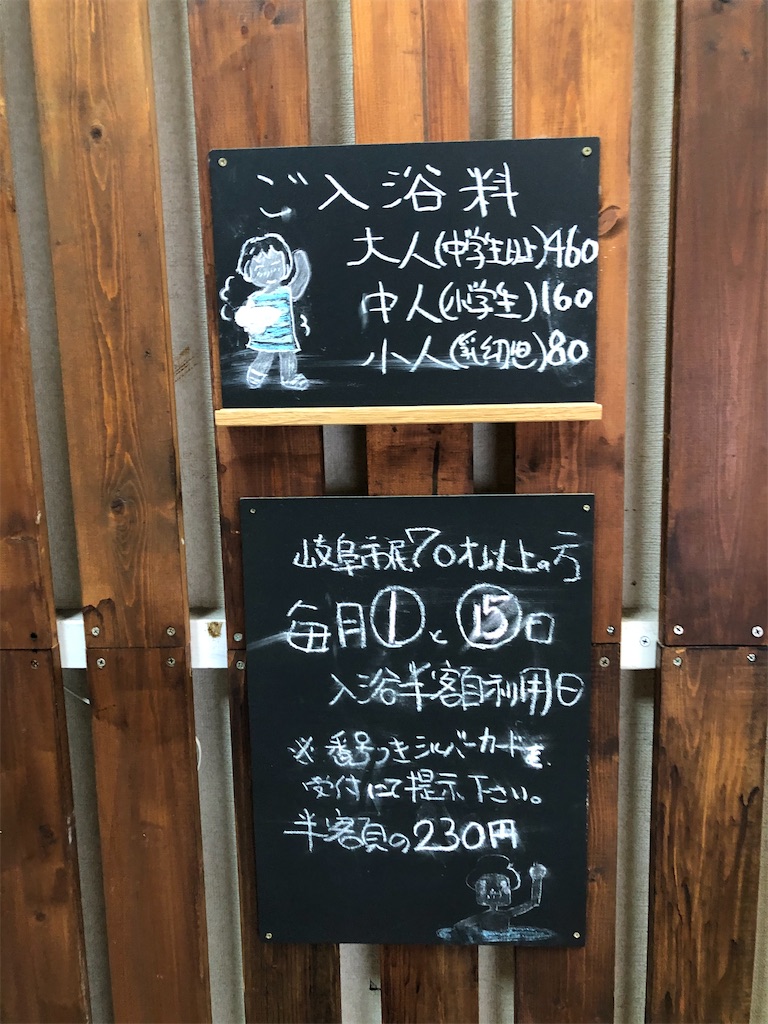 ご入浴料
大人(中学生以上)460
中人(小学生)160
小人(乳幼児)80
岐阜市民70才以上の方
毎月①と⑮日
入浴半額利用日
※番号つきシルバーカードを
受付にて提示下さい。
半額の230円